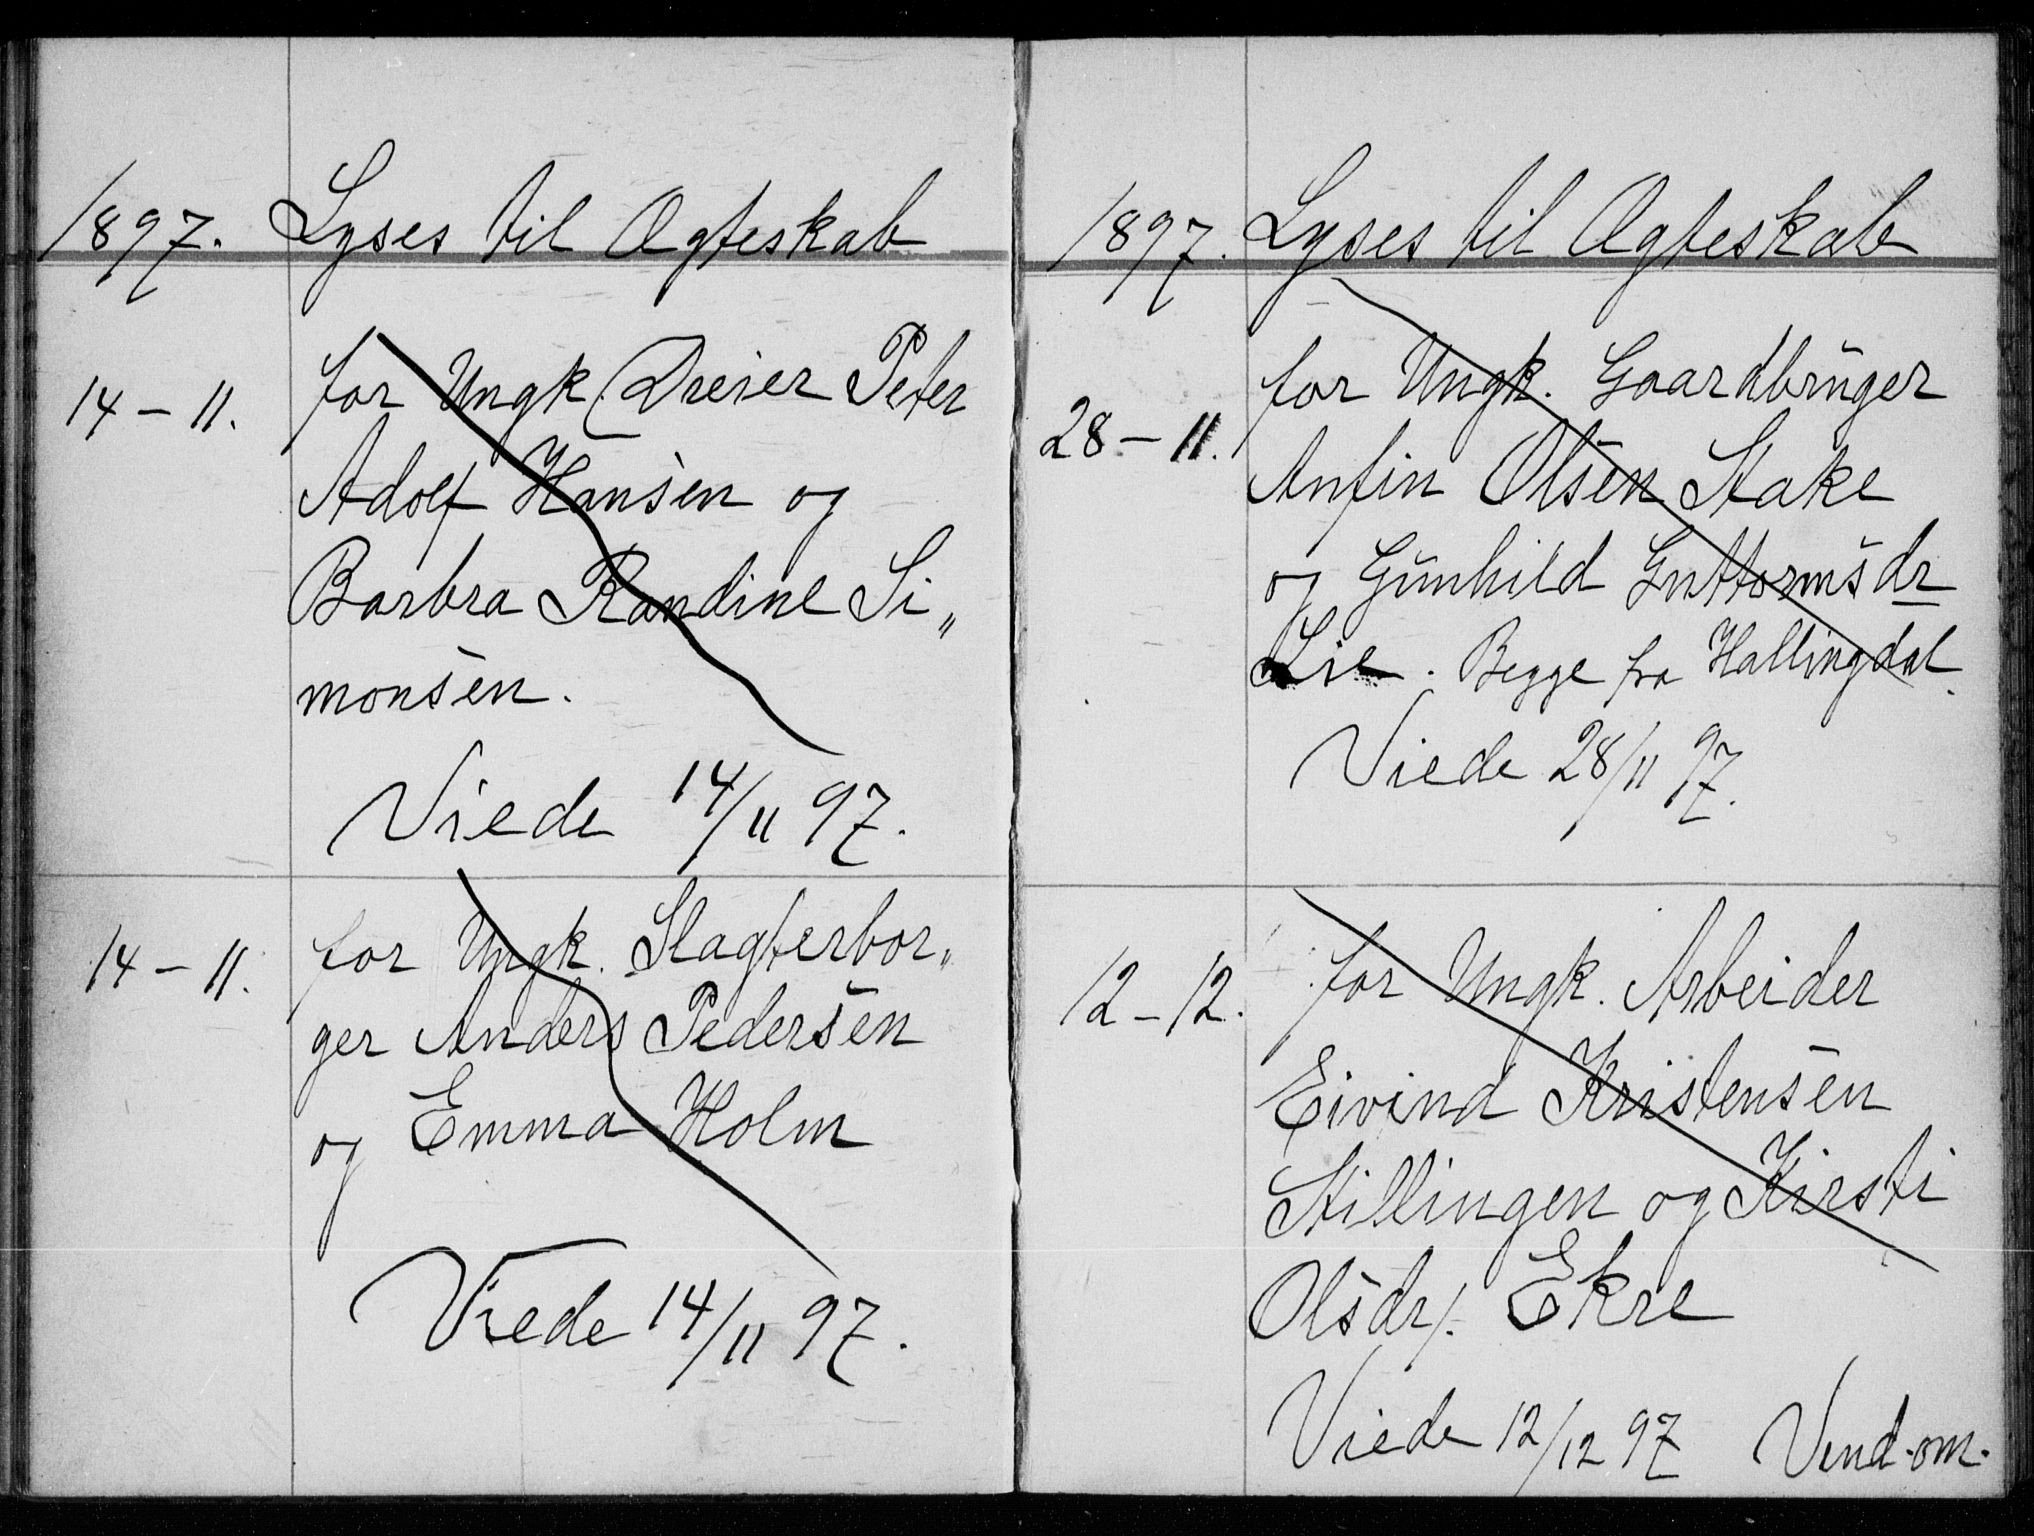 1897. Lyses til Ægteskab
14-11. for Ungk. Dreier Peter
Adolf Hansen og
Barbra Randine Si„
monsen.
Viede 14/11 97.
14-11. for Ungk. Slagterbor„
ger Anders Pedersen
og Emma Holm
Viede 14/11 97.
1897. Lyses til Ægteskab
28-11. for Ungk. Gaardbruger
Anfin Olsen Stake
og Gunhild Guttormsdr
Lie. Begge fra Hallingdal.
Viede 28/11 97.
12-12. for Ungk. Arbeider
Eivind Kristensen
Stillingen og Kirsti
Olsdr. Ekre
Viede 12/12 97 Vend om.